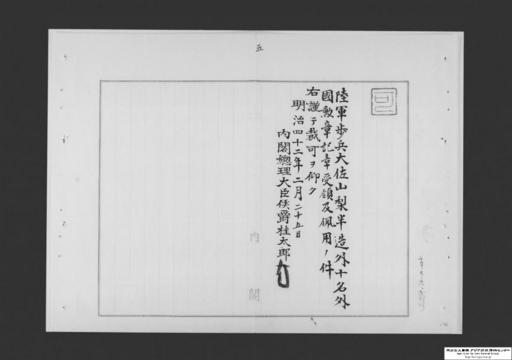 五
可
陸軍歩兵大佐山梨半造外十名外
國勲章記章受領及佩用ノ件
右謹テ裁可ヲ仰ク
明治四十二年二月二十五日
内閣總理大臣侯爵桂太郎
内閣